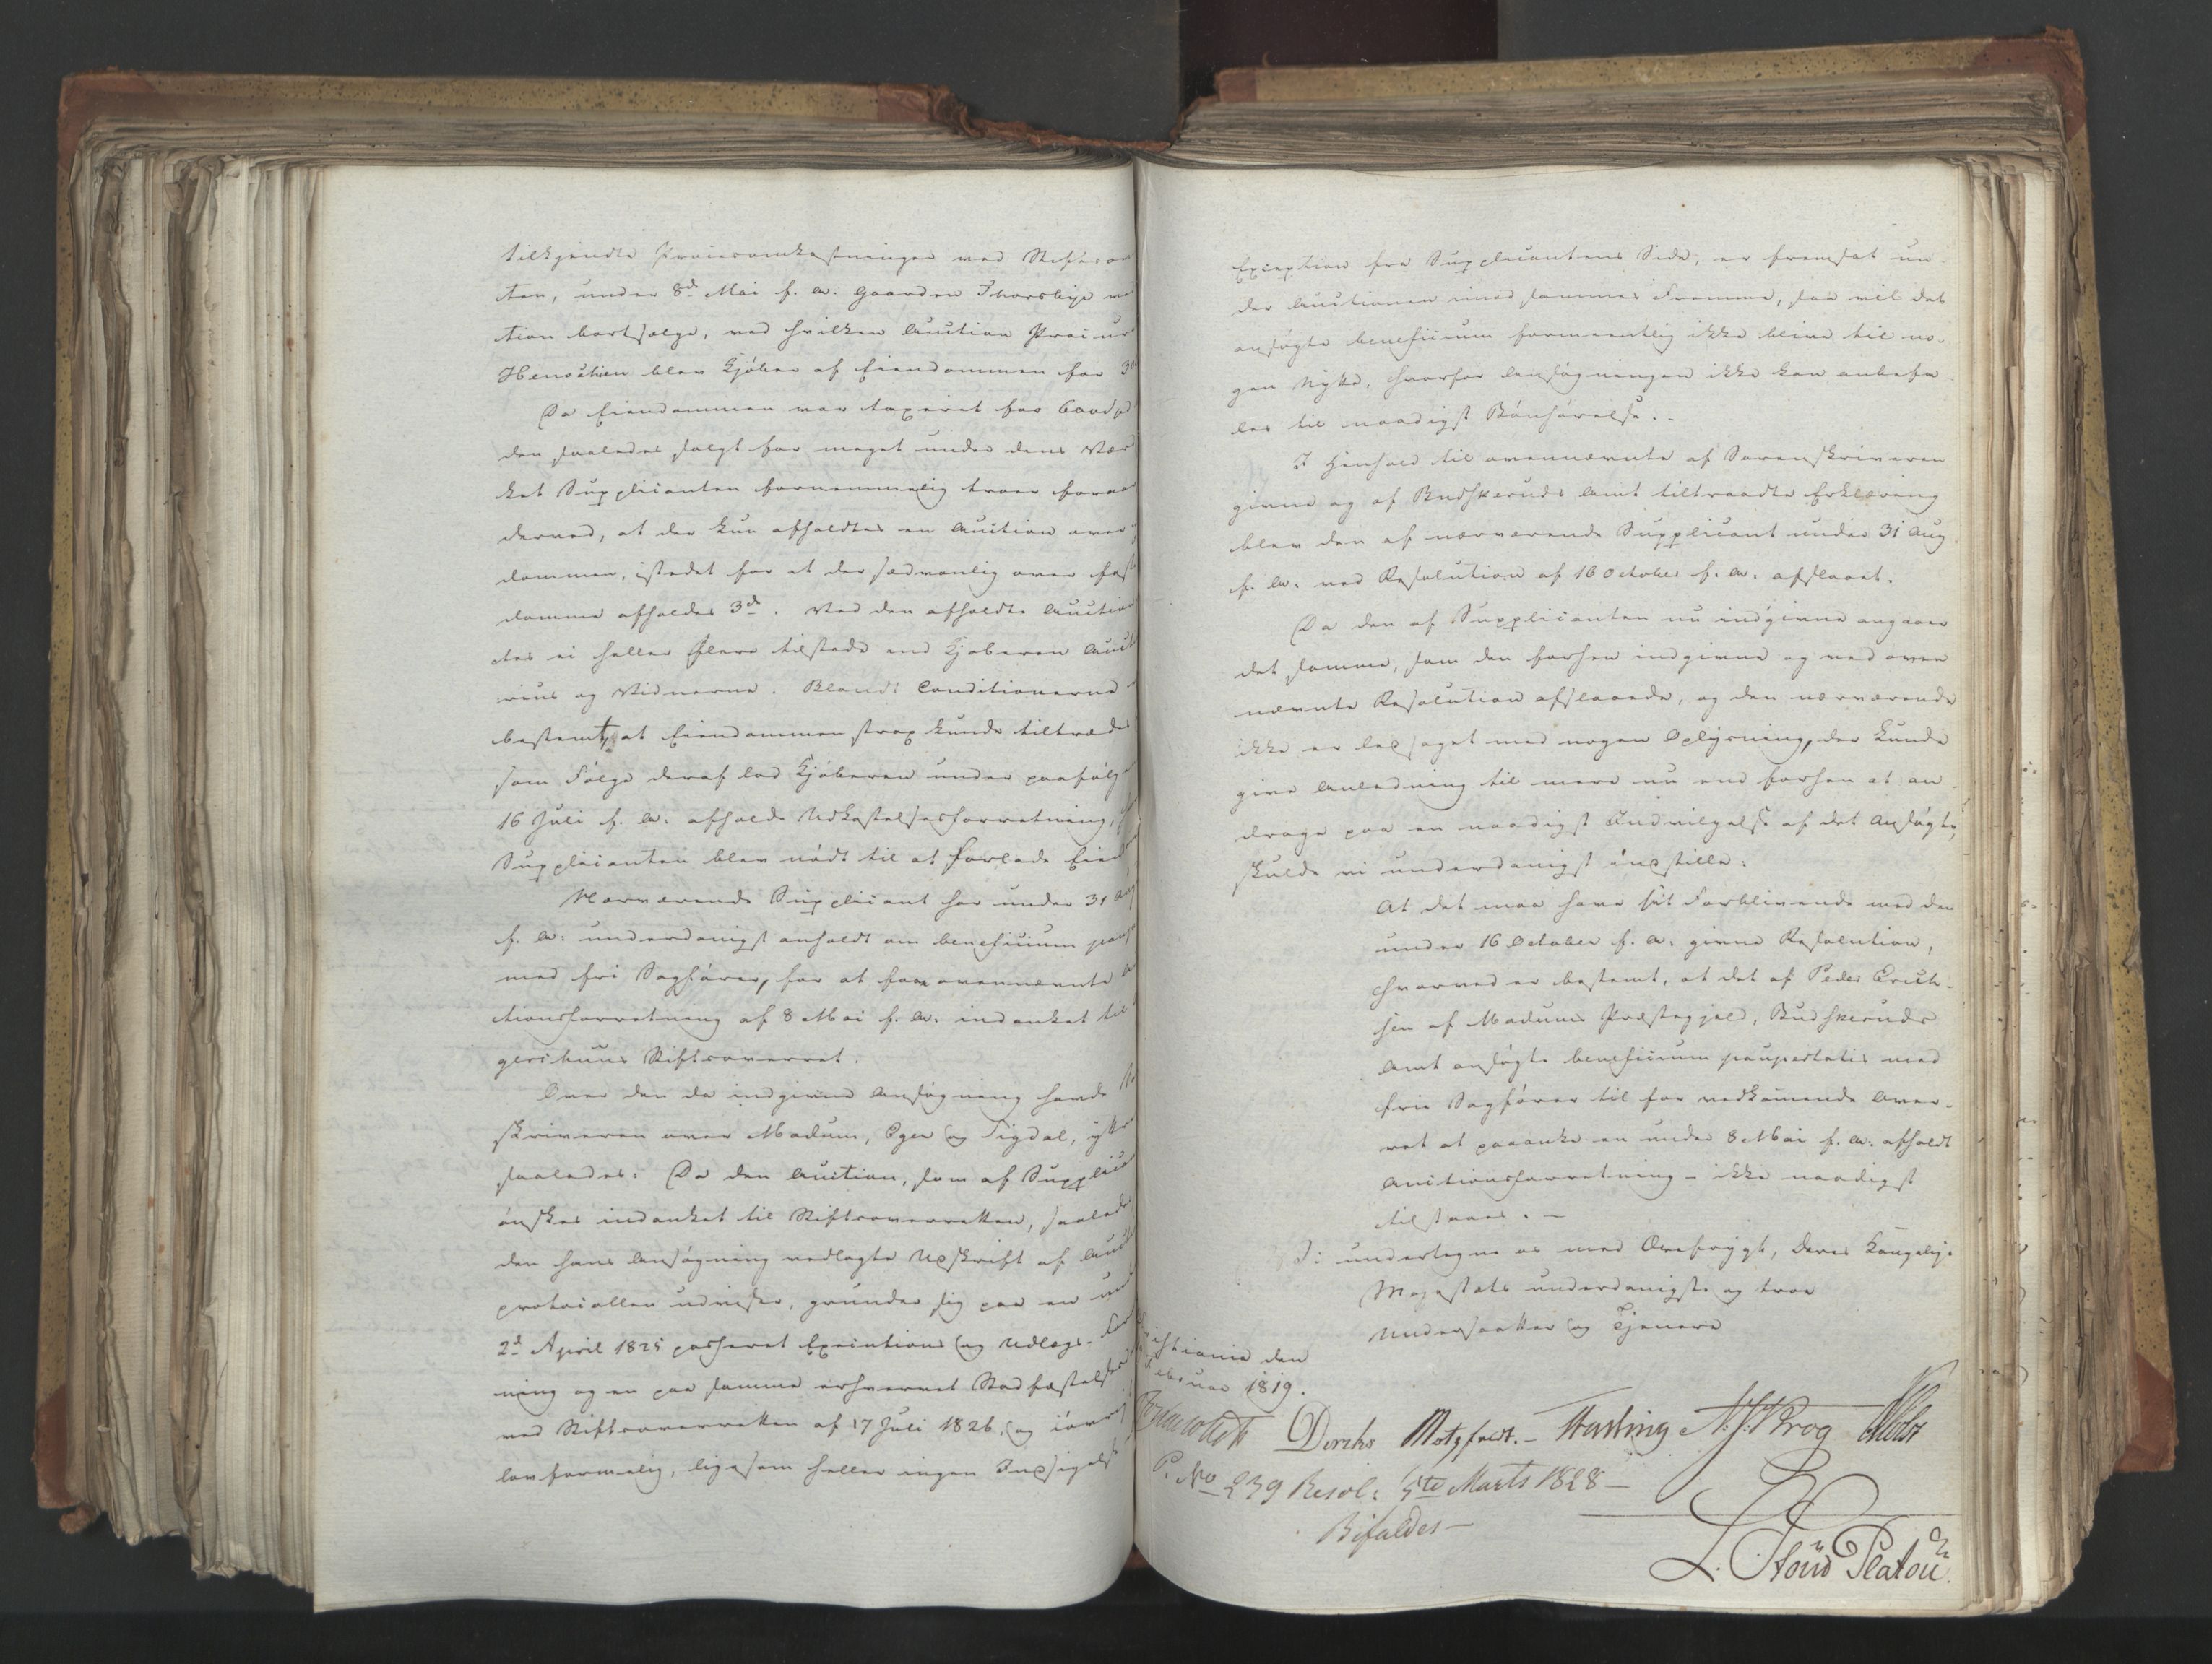 tilkjendte Procesomkostninger ved Stiftsov
ten, under 8de Mai f. A. Gaarden Thorsbye ve
tion bortsælge, ved hvilken Auction Procur
blev Kjøber af Eiendommen for 30
Da Eiendommen var taxeret for 600
den saaledes solgt for meget under dens Vær
ket Supplicanten fornemmelig troer foraar
derved, at der kun afholdtes en Auction over
dommen, istedet for at der sædvanlig over fast
domme afholdes 3de. Ved den afholdte Auction
des ei heller flere tilstede end Kjøberen Auct
rius og Vidnerne. Blandt Conditionerne
bestemt, at Eiendommen strax kunde tiltrædes
som Følge deraf lod Kjøberen under paafølg
16 Juli f. A. afholde Udkastelsesforretning,
Supplicanten blev nødt til at forlade Eiendom
Nærværende Supplicant har under 31 Aug
f. A. underdanigst anholdt om beneficium paup
med fri Sagfører, for at faae ovennævnte A
tionsforretning af 8 Mai f. A. indanket til
gershuus Stiftsoverret.
Over den da indgivne Ansøgning havde
skriveren over Modum, Eger og Sigdal, yttr
saaledes: Da den Auction, som af Supplican
ønskes indanket til Stiftsoverretten, saalede
den hans Ansøgning vedlagte Udskrift af Auct
protocollen udviser, grunder sig paa en un
2d April 1825 passeret Execution og Udlægs-For
ning og en paa samme erhvervet Stadfæstelse
ved Stiftsoverretten af 17 Juli 1826, og iøvrig
lovformelig, ligesom heller ingen Indsigelse
Exception fra Supplicantens Side, er fremsat un-
der Auctionen imod sammes Fremme, saa vil det
ansøgte beneficium formeentlig ikke blive til no-
gen Nytte, hvorfor Ansøgningen ikke kan anbefa-
les til naadigst Bønhørelse. -
I Henhold til ovennævnte af Sorenskriveren
givne og af Budskeruds Amt tiltraadte Erklæring
blev den af nærværende Supplicant under 31 Aug
f. A. ved Resolution af 16 October f. A. afslaaet.
Da den af Supplicanten nu indgivne angaaer
det samme, som den forhen indgivne og ved oven-
nævnte Resolution afslaaede, og den nærværende
ikke er ledsaget med nogen Oplysning, der kunde
give Anledning til mere nu end forhen at an-
drage paa en naadigst Indvilgelse af det Ansøgte,
skulde vi underdanigst indstille:
At det maa have sit Forblivende med den
under 16 October f. A. givne Resolution,
hvorved er bestemt, at det af Peder Erich-
sen af Modums Præstegjeld, Budskeruds
Amt ansøgte beneficium paupertatis med
frie Sagfører til for vedkommende Over-
ret at paaanke en under 8 Mai f. A. afholdt
Auctionsforretning - ikke naadigst
tilstaaes. -
Vi undertegne os med Ærefrygt, Deres Kongelige
Majestæts underdanigste og troe
Undersaatter og Tjenere
istiania den
ebruar 1819.
Diriks Motzfeldt. - Fasting N. J. Krog
P. No 239 Resol: 5te Marts 1828 -
Bifaldes -
L. Stoud Platou